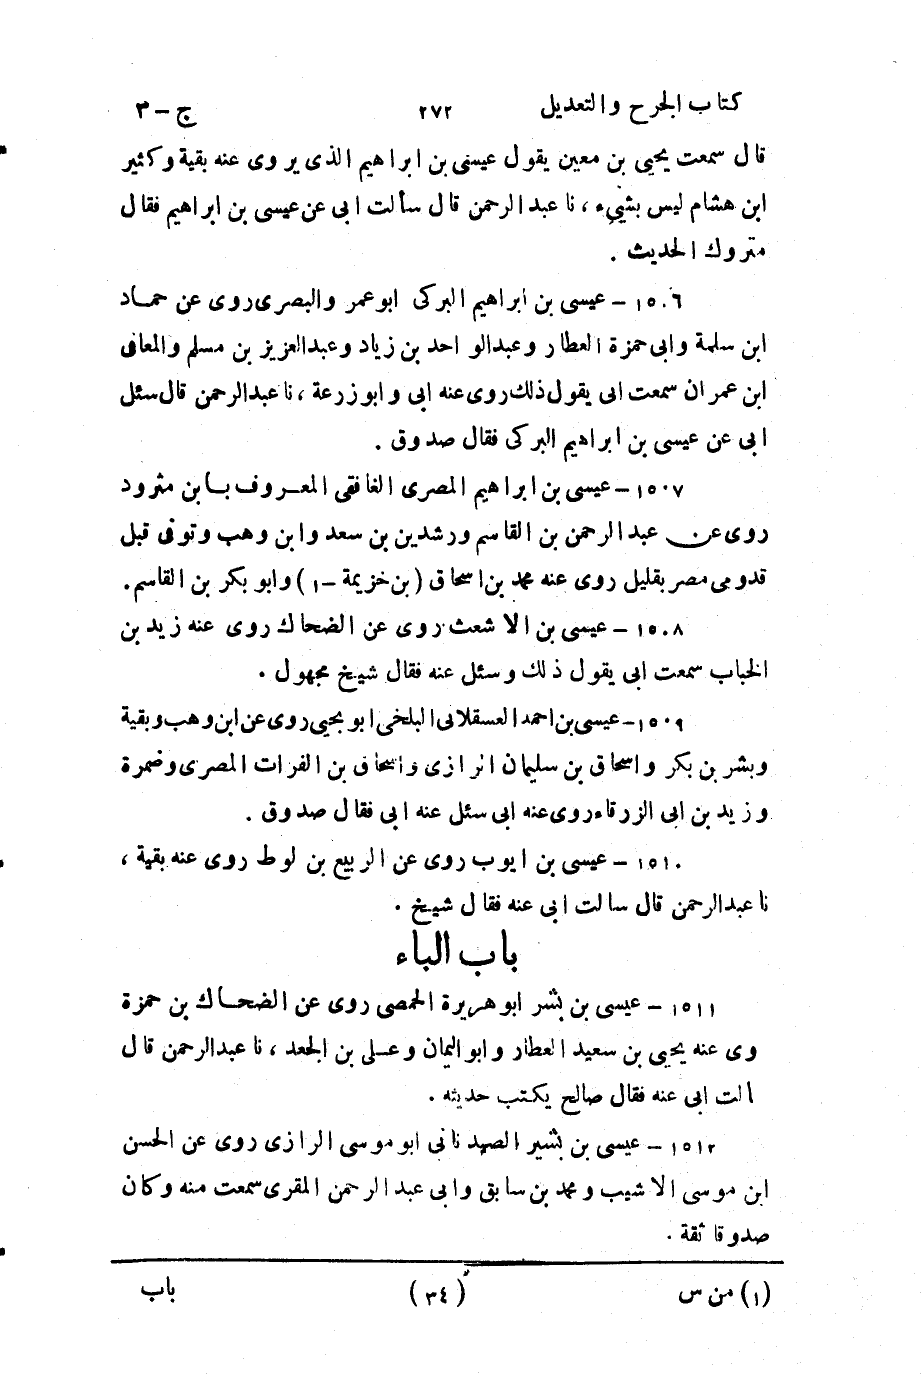 كتاب الجرح والتعديل ٢٧٢ ج - ٣
قال سمعت يحيى بن معين يقول عيسى بن ابراهيم الذى يروى عنه بقية وكثير
ابن هشام ليس بشيء ، نا عبد الرحمن قال سألت ابى عن عيسى بن ابراهيم فقال
متروك الحديث .
١٥٠٦ - عيسى بن ابراهيم البركى ابوعمر والبصرى روى عن حماد
ابن سلمة وابى حمزة العطار وعبدالواحد بن زياد وعبدالعزيز بن مسلم والمعافى
ابن عمران سمعت ابى يقول ذلك روى عنه ابى وابوزرعة ، نا عبدالرحمن قال سئل
ابى عن عيسى بن ابراهيم البركى فقال صدوق .
١٥٠٧ - عيسى بن ابراهيم المصرى الغافقى المعروف بابن مثرود
روى عن عبد الرحمن بن القاسم ورشدين بن سعد وابن وهب وتوفى قبل
قدومى مصر بقليل روى عنه محمد بن اسحاق ( بن خزيمة - ١ ) وابو بكر بن القاسم .
١٥٠٨ - عيسى بن الاشعث روى عن الضحاك روى عنه زيد بن
الحباب سمعت ابى يقول ذلك وسئل عنه فقال شيخ مجهول .
١٥٠٩ - عيسى بن احمد العسقلانى البلخى ابو يحيى روى عن ابن وهب وبقية
وبشر بن بكر واسحاق بن سليمان الرازى واسحاق بن الفرات المصرى وضمرة
وزيد بن ابى الزرقاء روى عنه ابى سئل عنه ابى فقال صدوق .
١٥١٠ - عيسى بن ايوب روى عن الربيع بن لوط روى عنه بقية ،
نا عبدالرحمن قال سالت ابى عنه فقال شيخ .
باب الباء
١٥١١ - عيسى بن بشر ابو هريرة الحمصى روى عن الضحاك بن حمزة
وى عنه يحيى بن سعيد العطار وابو اليمان وعلى بن الجعد ، نا عبدالرحمن قال
ألت ابى عنه فقال صالح يكتب حديثه .
١٥١٢ - عيسى بن بشير الصيدنانى ابو موسى الرازى روى عن الحسن
ابن موسى الاشيب ومحمد بن سابق وابى عبد الرحمن المقرى سمعت منه وكان
صدوقا ثقة .
(١) من س (٣٤) باب